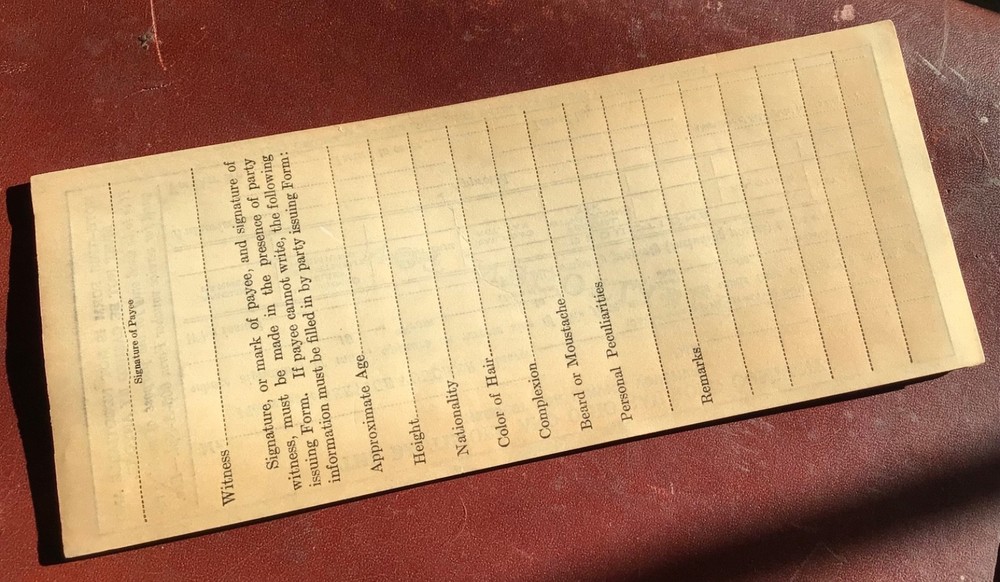 Signature of Payee
Witness
Signature, or mark of payee, and signature of
witness, must be made in the presence of party
issuing Form. If payee cannot write, the following
information must be filled in by party issuing Form:
Approximate Age
Height
Nationality
Color of Hair
Complexion
Beard or Moustache
Personal Peculiarities
Remarks